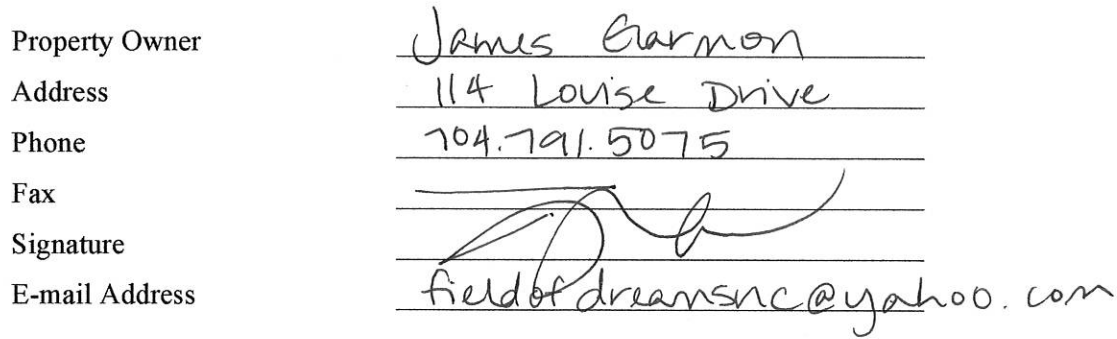 Property Owner James Garmon
Address 114 Louise Drive
Phone 704.791.5075
Fax
Signature
E-mail Address fieldofdreamsnc@yahoo.com